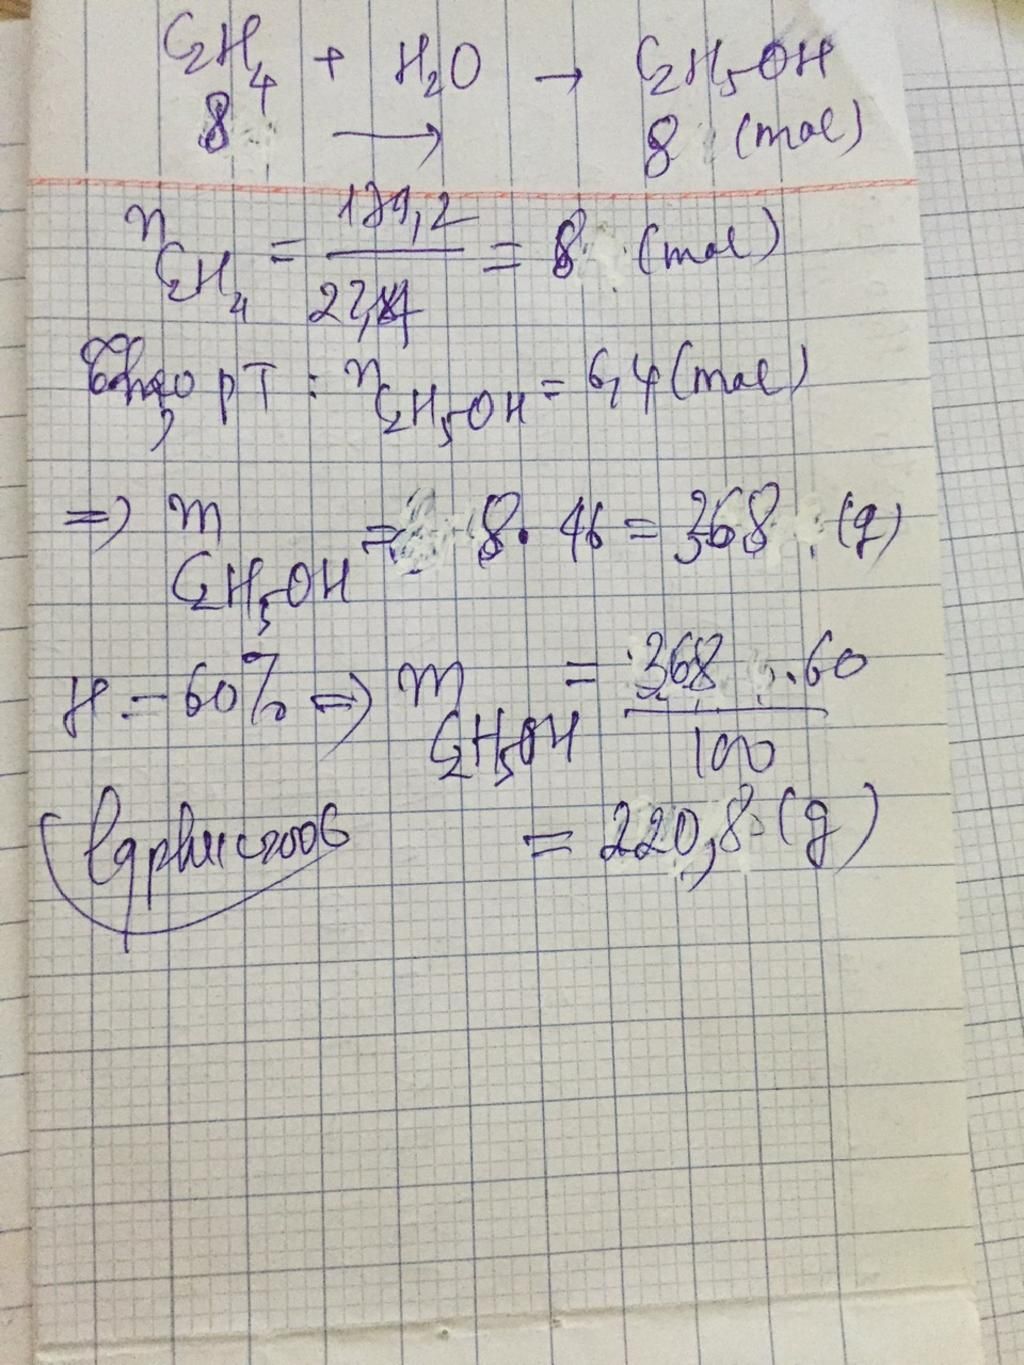 C2H4 + H2O → C2H5OH
8 → 8 (mol)
nC2H4 = 179,2 / 22,4 = 8 (mol)
Theo PT : nC2H5OH = 6,4 (mol)
=> mC2H5OH = 8 . 46 = 368 (g)
H = 60% => mC2H5OH = 368 . 60 / 100
= 220,8 (g)